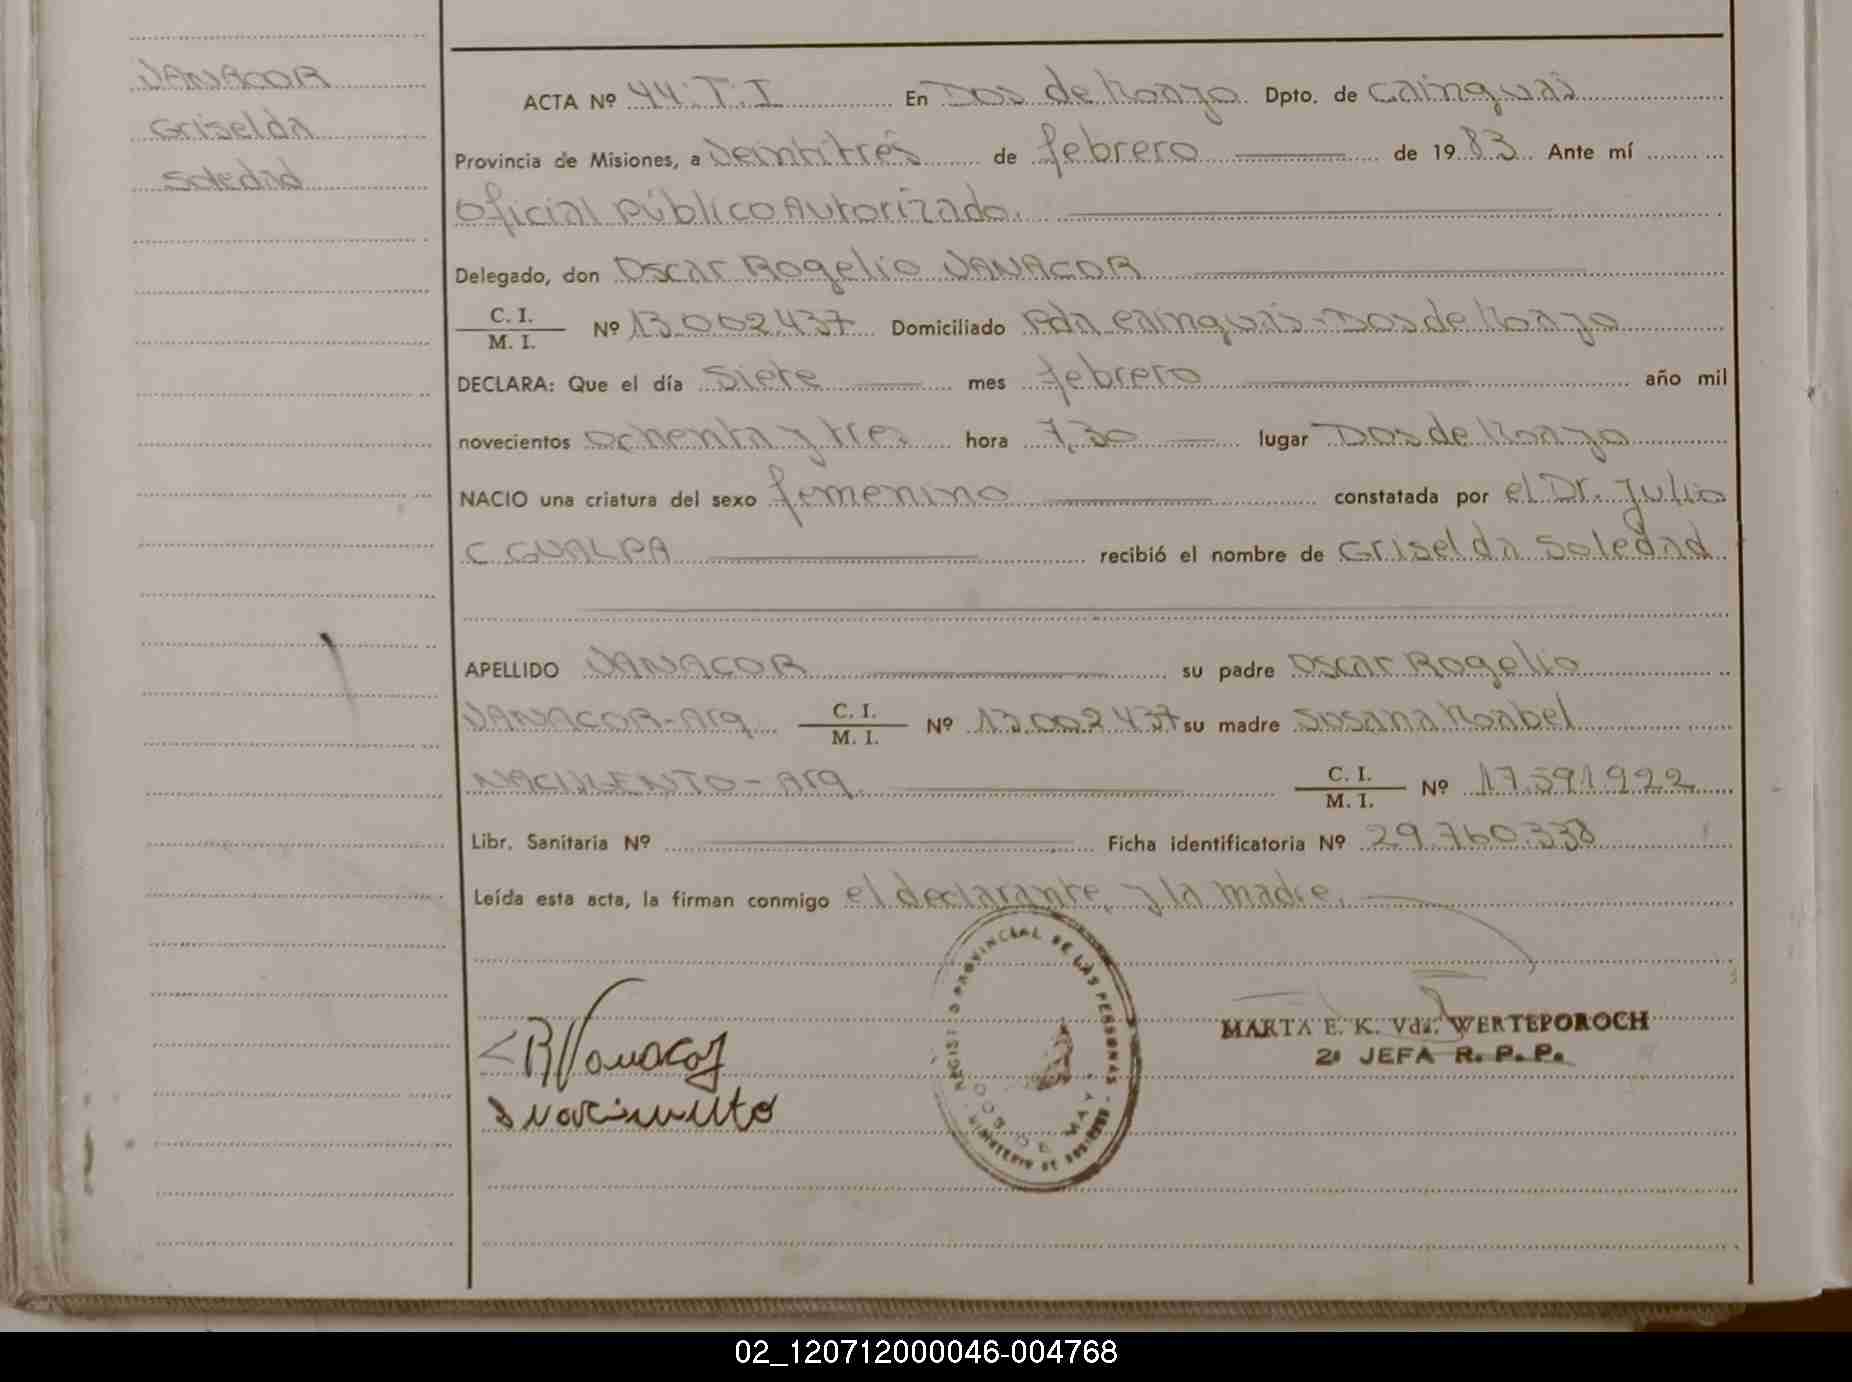 VANACOR
Griselda
Soledad
ACTA Nº 44.T.I En Dos de Mayo Dpto. de Cainguás
Provincia de Misiones, a veintitrés de febrero de 1983 Ante mí
Oficial Público Autorizado.
Delegado, don Oscar Rogelio VANACOR
C. I.
M. I. Nº 13.002.437 Domiciliado Pda Cainguás - Dos de Mayo
DECLARA: Que el día siete mes febrero año mil
novecientos ochenta y tres hora 7,30 lugar Dos de Mayo
NACIO una criatura del sexo femenino constatada por el Dr. Julio
C GUALPA recibió el nombre de Griselda Soledad
APELLIDO VANACOR su padre Oscar Rogelio
VANACOR-Arg C. I.
M. I. Nº 13.002.437 su madre Susana Mabel
NACIMENTO - Arg C. I.
M. I. Nº 17.591.922
Libr. Sanitaria Nº Ficha identificatoria Nº 29.760.338
Leída esta acta, la firman conmigo el declarante, y la madre.
REGISTRO PROVINCIAL DE LAS PERSONAS
DOS DE MAYO
MINISTERIO DE GOBIERNO
MARTA E. K. Vda. WERTEPOROCH
2ª JEFA R. P. P.
Vanacor
S Nacimento
02_120712000046-004768